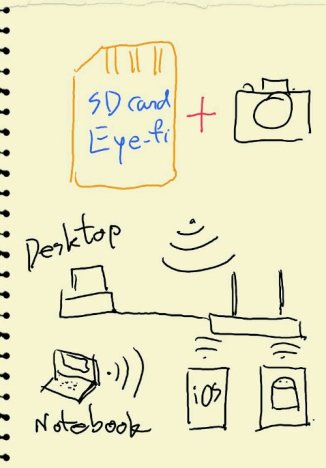 SD card
Eye-fi
Desktop
iOS
Notebook